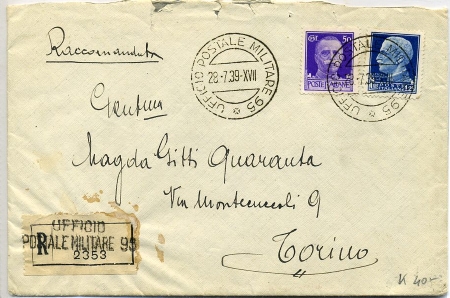 Raccomandata
UFFICIO POSTALE MILITARE 95
28-7.39-XVII
50
POSTE ITALIANE
UFFICIO POSTALE MILITARE 95
Gent.ma
Magda Gitti Quaranta
Via Montecuccoli 9
Torino
UFFICIO
POSTALE MILITARE 95
R
2353